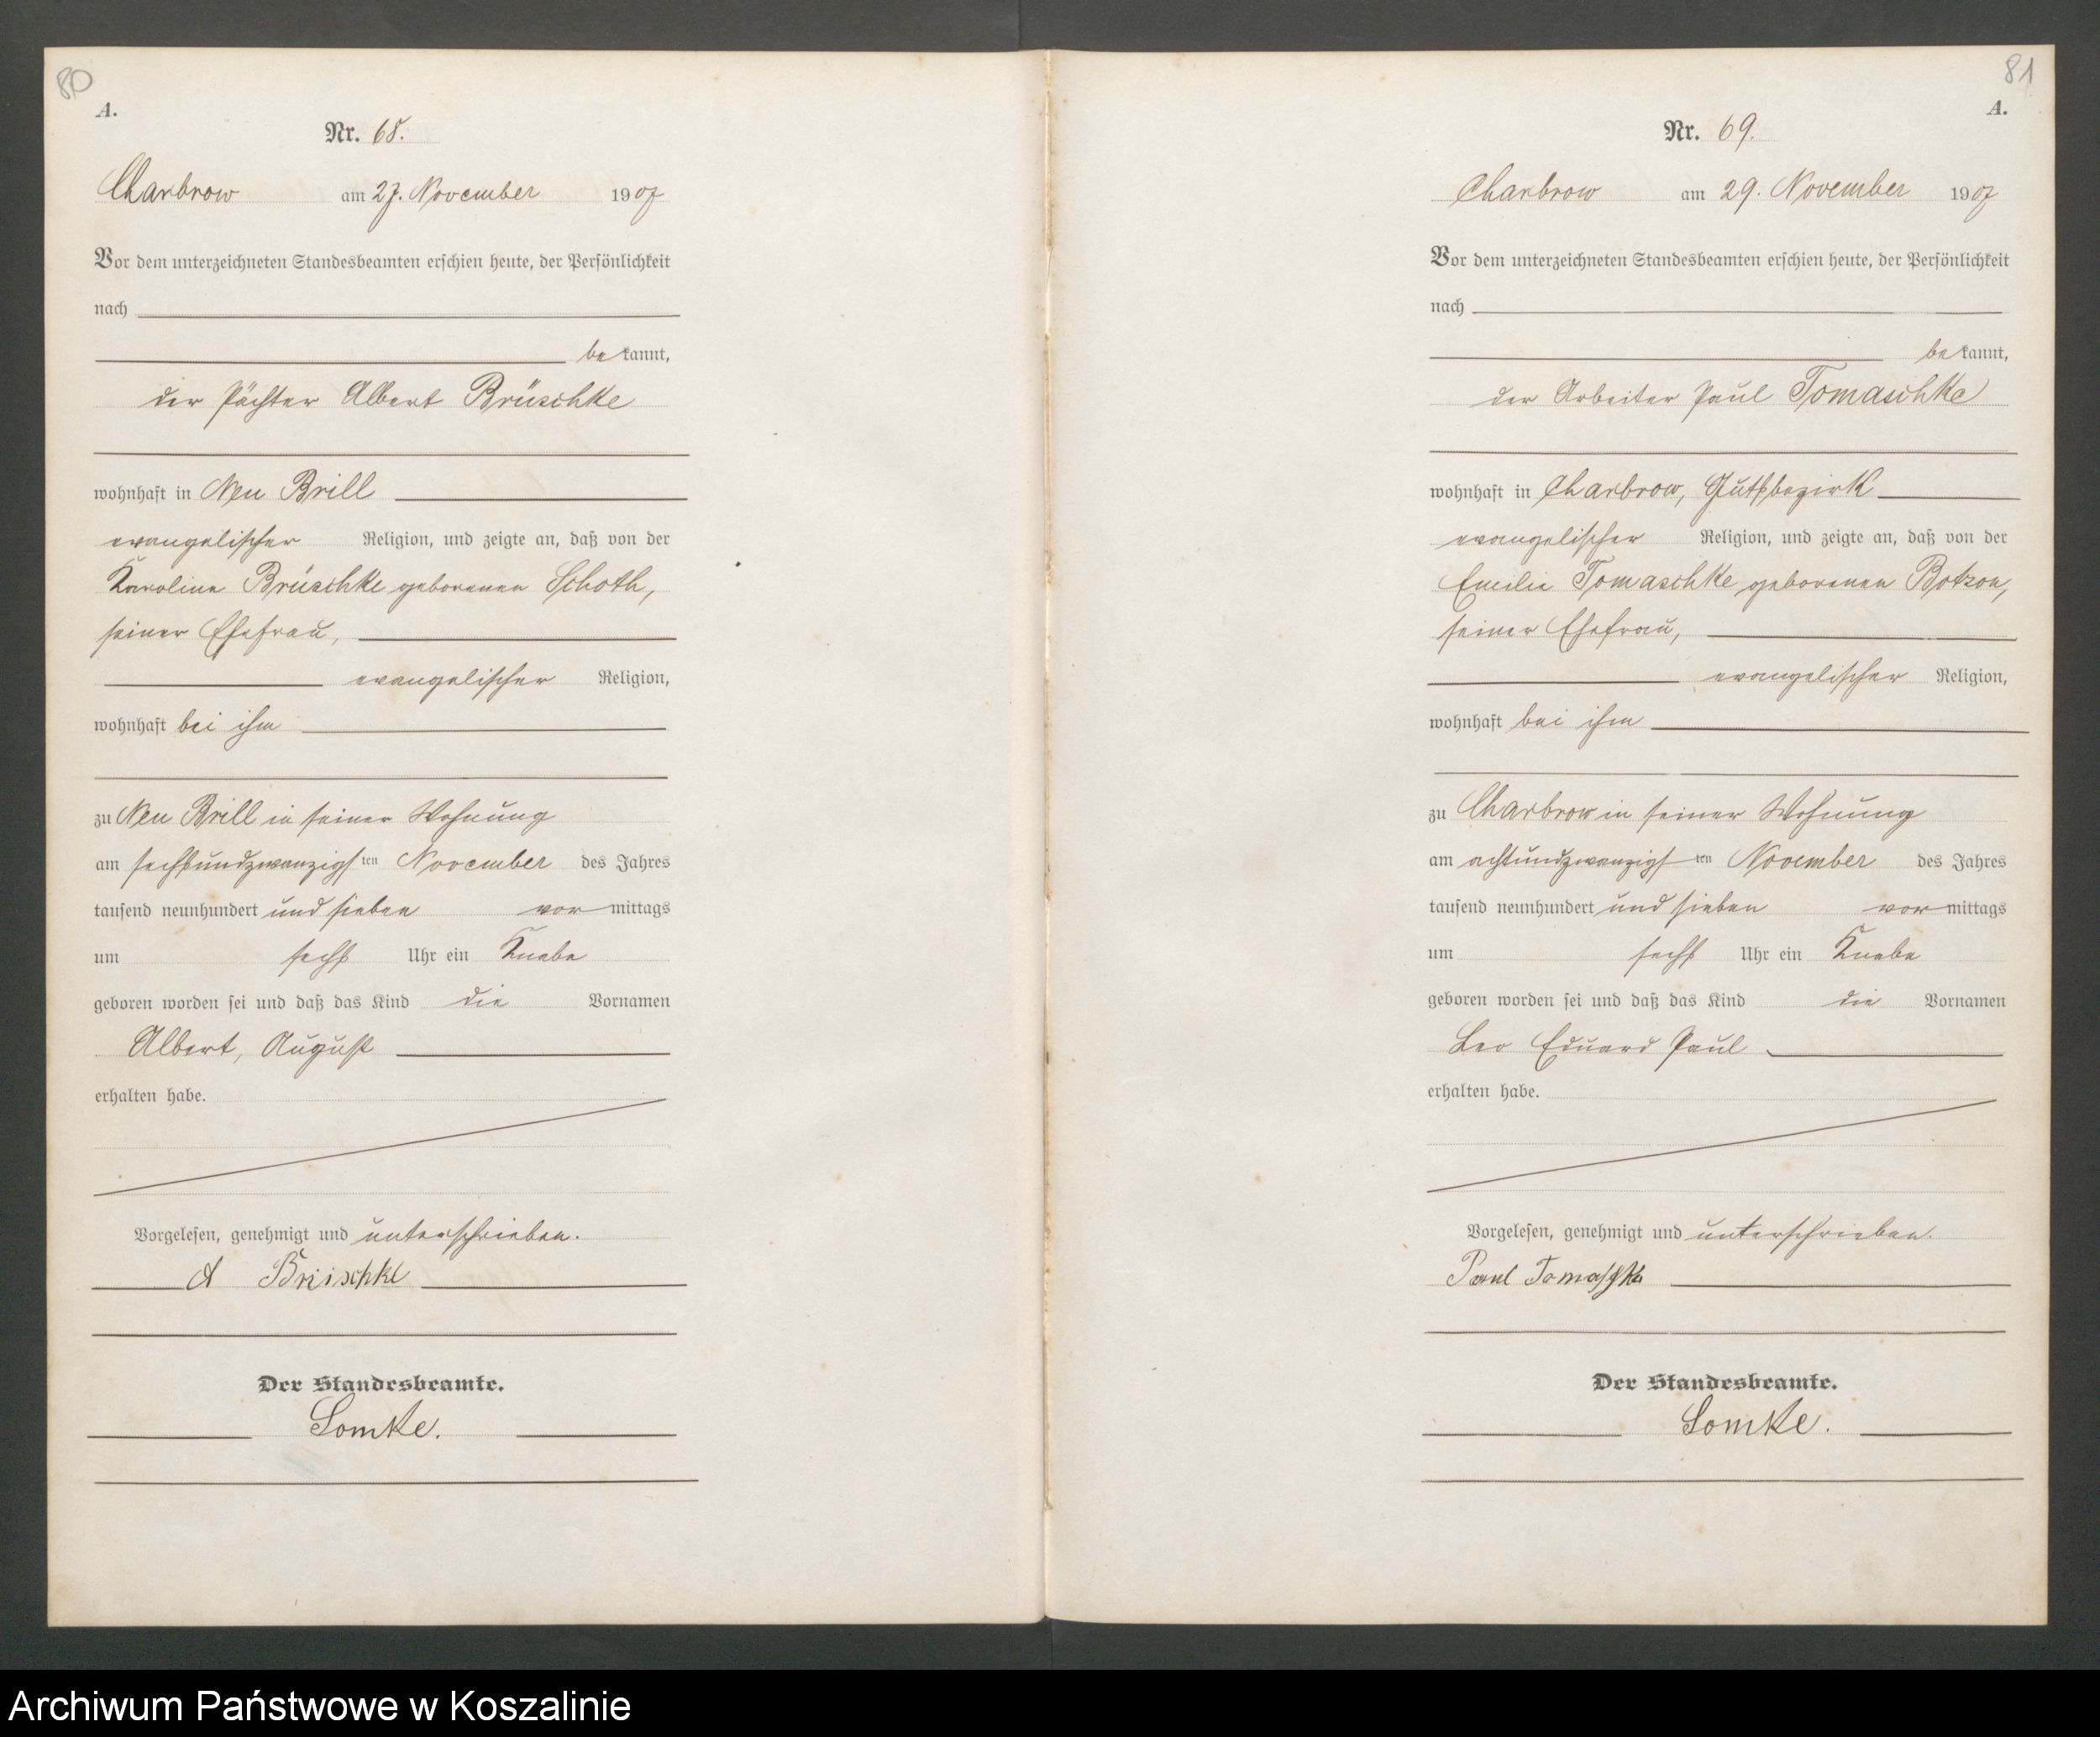 80
A.
Nr. 68.
Charbrow am 27. November 1907
Vor dem unterzeichneten Standesbeamten erschien heute, der Persönlichkeit
nach
bekannt,
der Pächter Albert Brüschke
wohnhaft in Neu Brill
evangelischer Religion, und zeigte an, daß von der
Karoline Brüschke geborenen Schoth,
seiner Ehefrau,
evangelischer Religion,
wohnhaft bei ihm
zu Neu Brill in seiner Wohnung
am sechsundzwanzigsten November des Jahres
tausend neunhundert und sieben vormittags
um sechs Uhr ein Knabe
geboren worden sei und daß das Kind die Vornamen
Albert, August
erhalten habe.
Vorgelesen, genehmigt und unterschrieben.
A Brüschke
Der Standesbeamte.
Lomke.
81
A.
Nr. 69.
Charbrow am 29. November 1907
Vor dem unterzeichneten Standesbeamten erschien heute, der Persönlichkeit
nach
bekannt,
der Arbeiter Paul Tomaschke
wohnhaft in Charbrow, Gutsbezirk
evangelischer Religion, und zeigte an, daß von der
Emilie Tomaschke geborenen Botzon,
seiner Ehefrau,
evangelischer Religion,
wohnhaft bei ihm
zu Charbrow in seiner Wohnung
am achtundzwanzigsten November des Jahres
tausend neunhundert und sieben vormittags
um sechs Uhr ein Knabe
geboren worden sei und daß das Kind die Vornamen
Leo Eduard Paul
erhalten habe.
Vorgelesen, genehmigt und unterschrieben.
Paul Tomaschke
Der Standesbeamte.
Lomke.
Archiwum Państwowe w Koszalinie